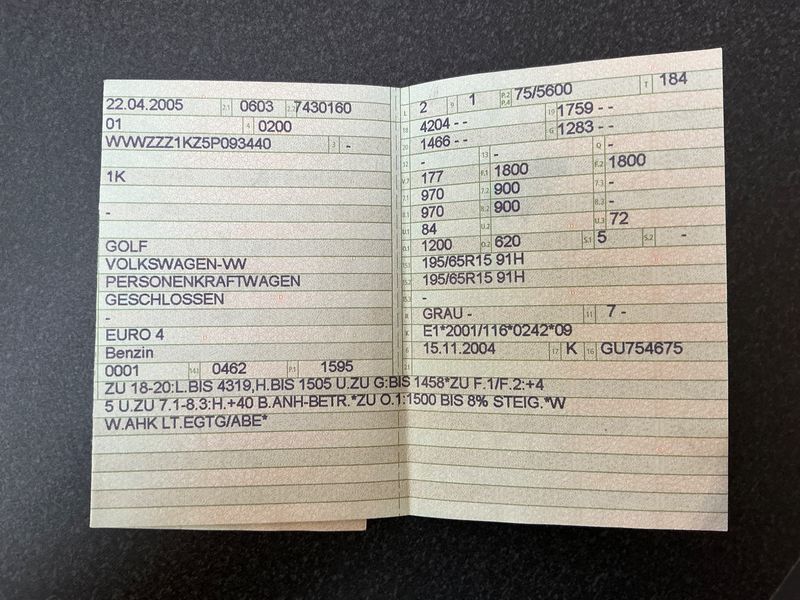 22.04.2005 2.1 0603 7430160
01 4 0200
WVWZZZ1KZ5P093440 3 -
1K
-
GOLF
VOLKSWAGEN-VW
PERSONENKRAFTWAGEN
GESCHLOSSEN
-
EURO 4
Benzin
0001 0462 P.1 1595
L 2 9 1 P.2 P.4 75/5600 T 184
18 4204 - - 19 1759 - -
20 1466 - - G 1283 - -
12 - 13 - Q -
V.7 177 F.1 1800 F.2 1800
7.1 970 7.2 900 7.3 -
8.1 970 8.2 900 8.3 -
U.1 84 U.2 U.3 72
O.1 1200 O.2 620 S.1 5 S.2 -
15.1 195/65R15 91H
15.2 195/65R15 91H
15.3 -
R GRAU - 11 7 -
K E1*2001/116*0242*09
6 15.11.2004 17 K 16 GU754675
21
ZU 18-20:L.BIS 4319,H.BIS 1505 U.ZU G:BIS 1458*ZU F.1/F.2:+4
5 U.ZU 7.1-8.3:H.+40 B.ANH-BETR.*ZU O.1:1500 BIS 8% STEIG.*W
W.AHK LT.EGTG/ABE*